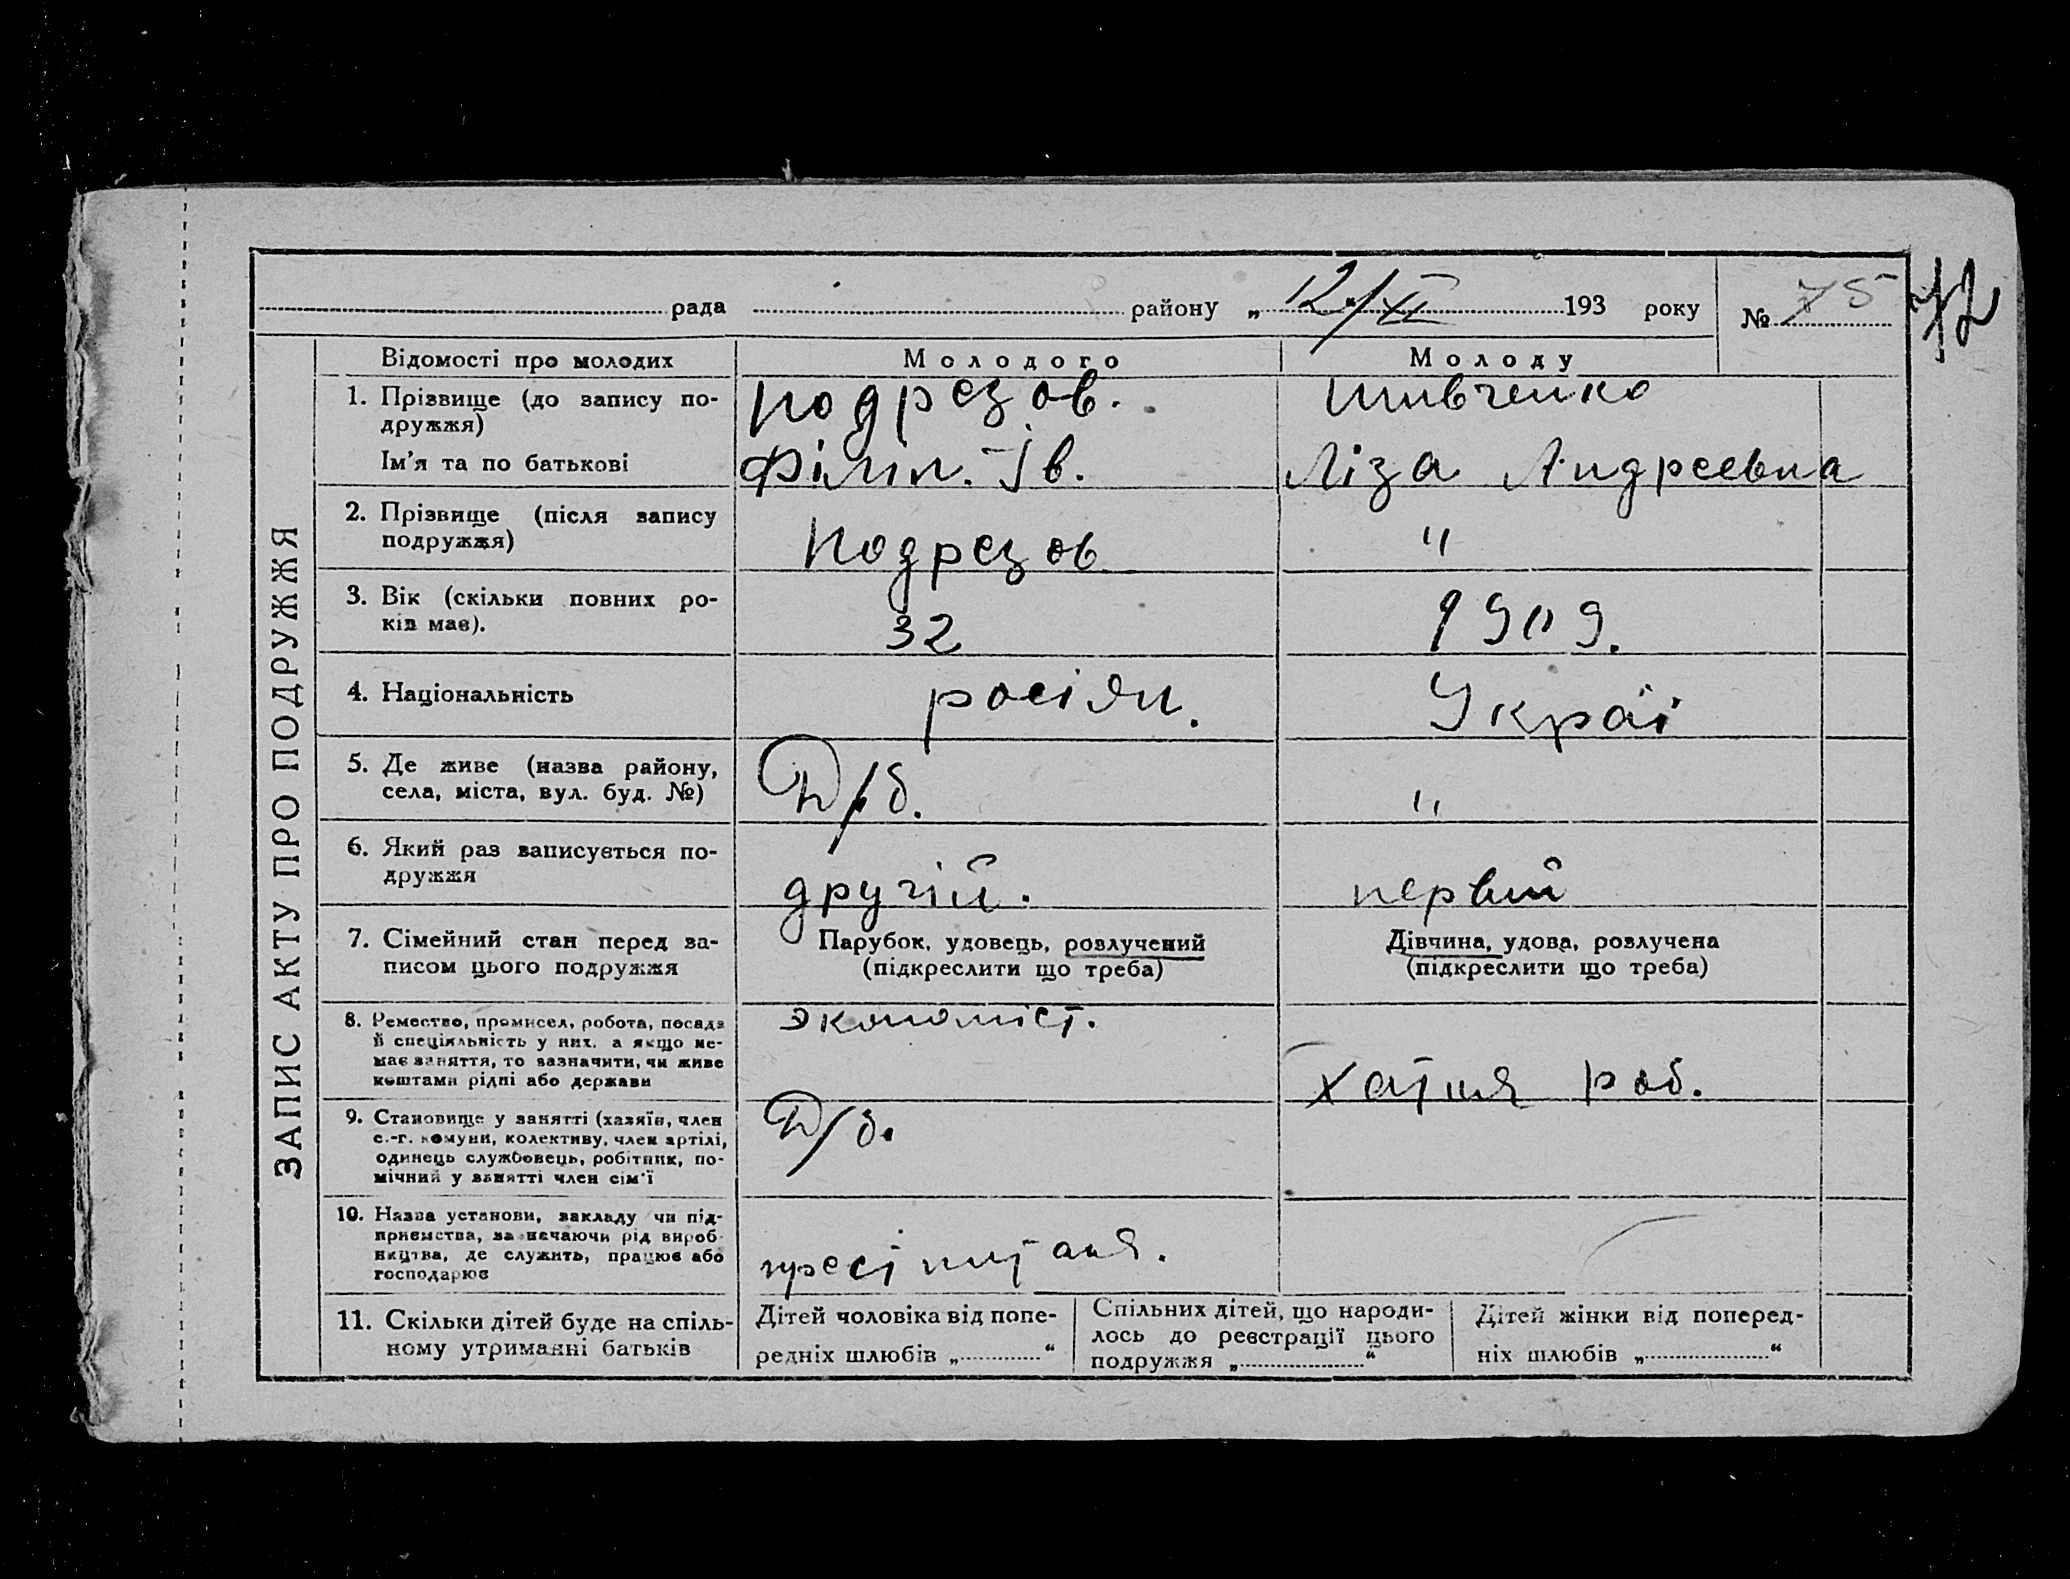 рада району „ 12/XI 193 року № 75
72
ЗАПИС АКТУ ПРО ПОДРУЖЖЯ
Відомості про молодих Молодого Молоду
1. Прізвище (до запису по-
дружжя)
Подрезов. Шивченко
Ім’я та по батькові Філіп. Ів. Ліза Андреевна
2. Прізвище (після запису
подружжя)
Подрезов "
3. Вік (скільки повних ро-
ків має).
32 1909.
4. Національність росіян. Украї
5. Де живе (назва району,
села, міста, вул. буд. №)
Д/б. "
6. Який раз записується по-
дружжя
другій. первий
7. Сімейний стан перед за-
писом цього подружжя
Парубок, удовець, розлучений
(підкреслити що треба)
Дівчина, удова, розлучена
(підкреслити що треба)
8. Ремество, промисел, робота, посада
й спеціяльність у них, а якщо не-
має заняття, то зазначити, чи живе
коштами рідні або держави
экономіст. хатня роб.
9. Становище у занятті (хазяїн, член
с.-г. комуни, колективу, член артілі,
одинець службовець, робітник, по-
мічний у занятті член сім’ї
Д/б.
10. Назва установи, закладу чи під-
приємства, зазначаючи рід вироб-
ництва, де служить, працює або
господарює
11. Скільки дітей буде на спіль-
ному утриманні батьків
Дітей чоловіка від попе-
редніх шлюбів „ “
Спільних дітей, що народи-
лось до реєстрації цього
подружжя „ “
Дітей жінки від поперед-
ніх шлюбів „ “